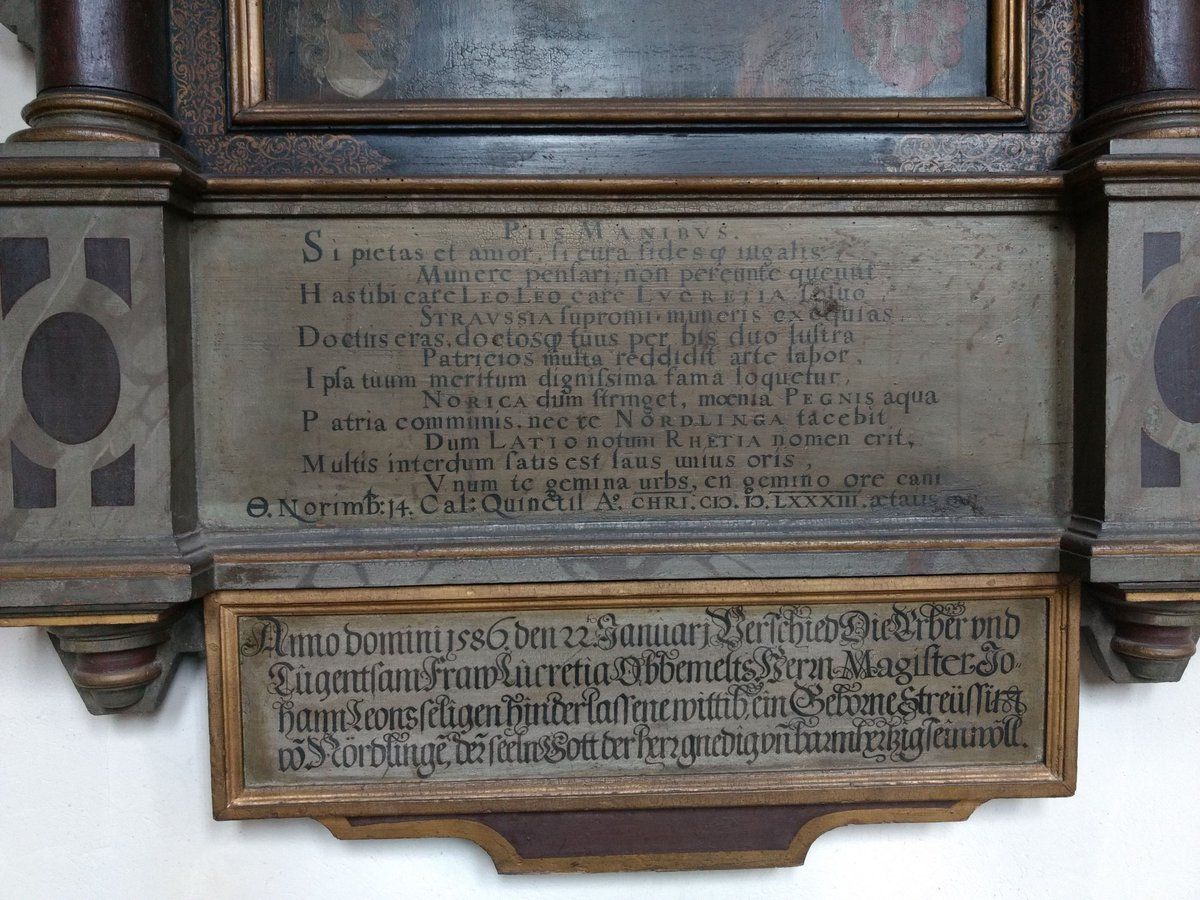 PIIS MANIBVS.
Si pietas et amor, si cura fidesqȝ iugalis
Munere pensari, non pereunte queunt
Has tibi care LEO LEO care LVCRETIA soluo
STRAVSSIA supromii muneris exequias.
Doctus eras, doctosqȝ tuus per bis duo lustra
Patricios multa reddidit arte labor,
Ipsa tuum meritum dignissima fama loquetur,
NORICA dum stringet, mœnia PEGNIS aqua
Patria communis, nec te NORDLINGA tacebit
Dum LATIO notum RHETIA nomen erit,
Multis interdum satis est laus unius oris,
Vnum te gemina urbs, en gemino ore cani
Θ. Norimb: 14. Cal: Quinctil Aº. CHRI. CIↃ. IↃ. LXXXIII. ætatis
Anno domini 1586. den 22 Januarj Verschied Die Erber vnd
Tugentsam Fraw Lucretia Obbemelts Herrn Magister Jo-
hann Leons seligen hinderlassene wittib, ein Geborne Streüssin
vō Nördlingē, der seeln Gott der herr gnedig vn barmhertzig sein wöll.